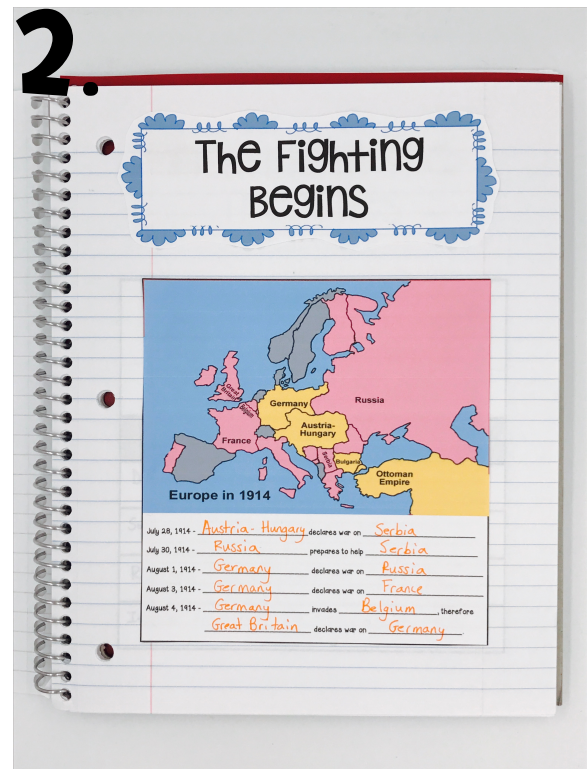 2.
The Fighting
Begins
Great Britain
Belgium
Germany
Russia
Austria-
Hungary
France
Serbia
Bulgaria
Ottoman
Empire
Europe in 1914
July 28, 1914 - Austria-Hungary declares war on Serbia
July 30, 1914 - Russia prepares to help Serbia
August 1, 1914 - Germany declares war on Russia
August 3, 1914 - Germany declares war on France
August 4, 1914 - Germany invades Belgium, therefore
Great Britain declares war on Germany.